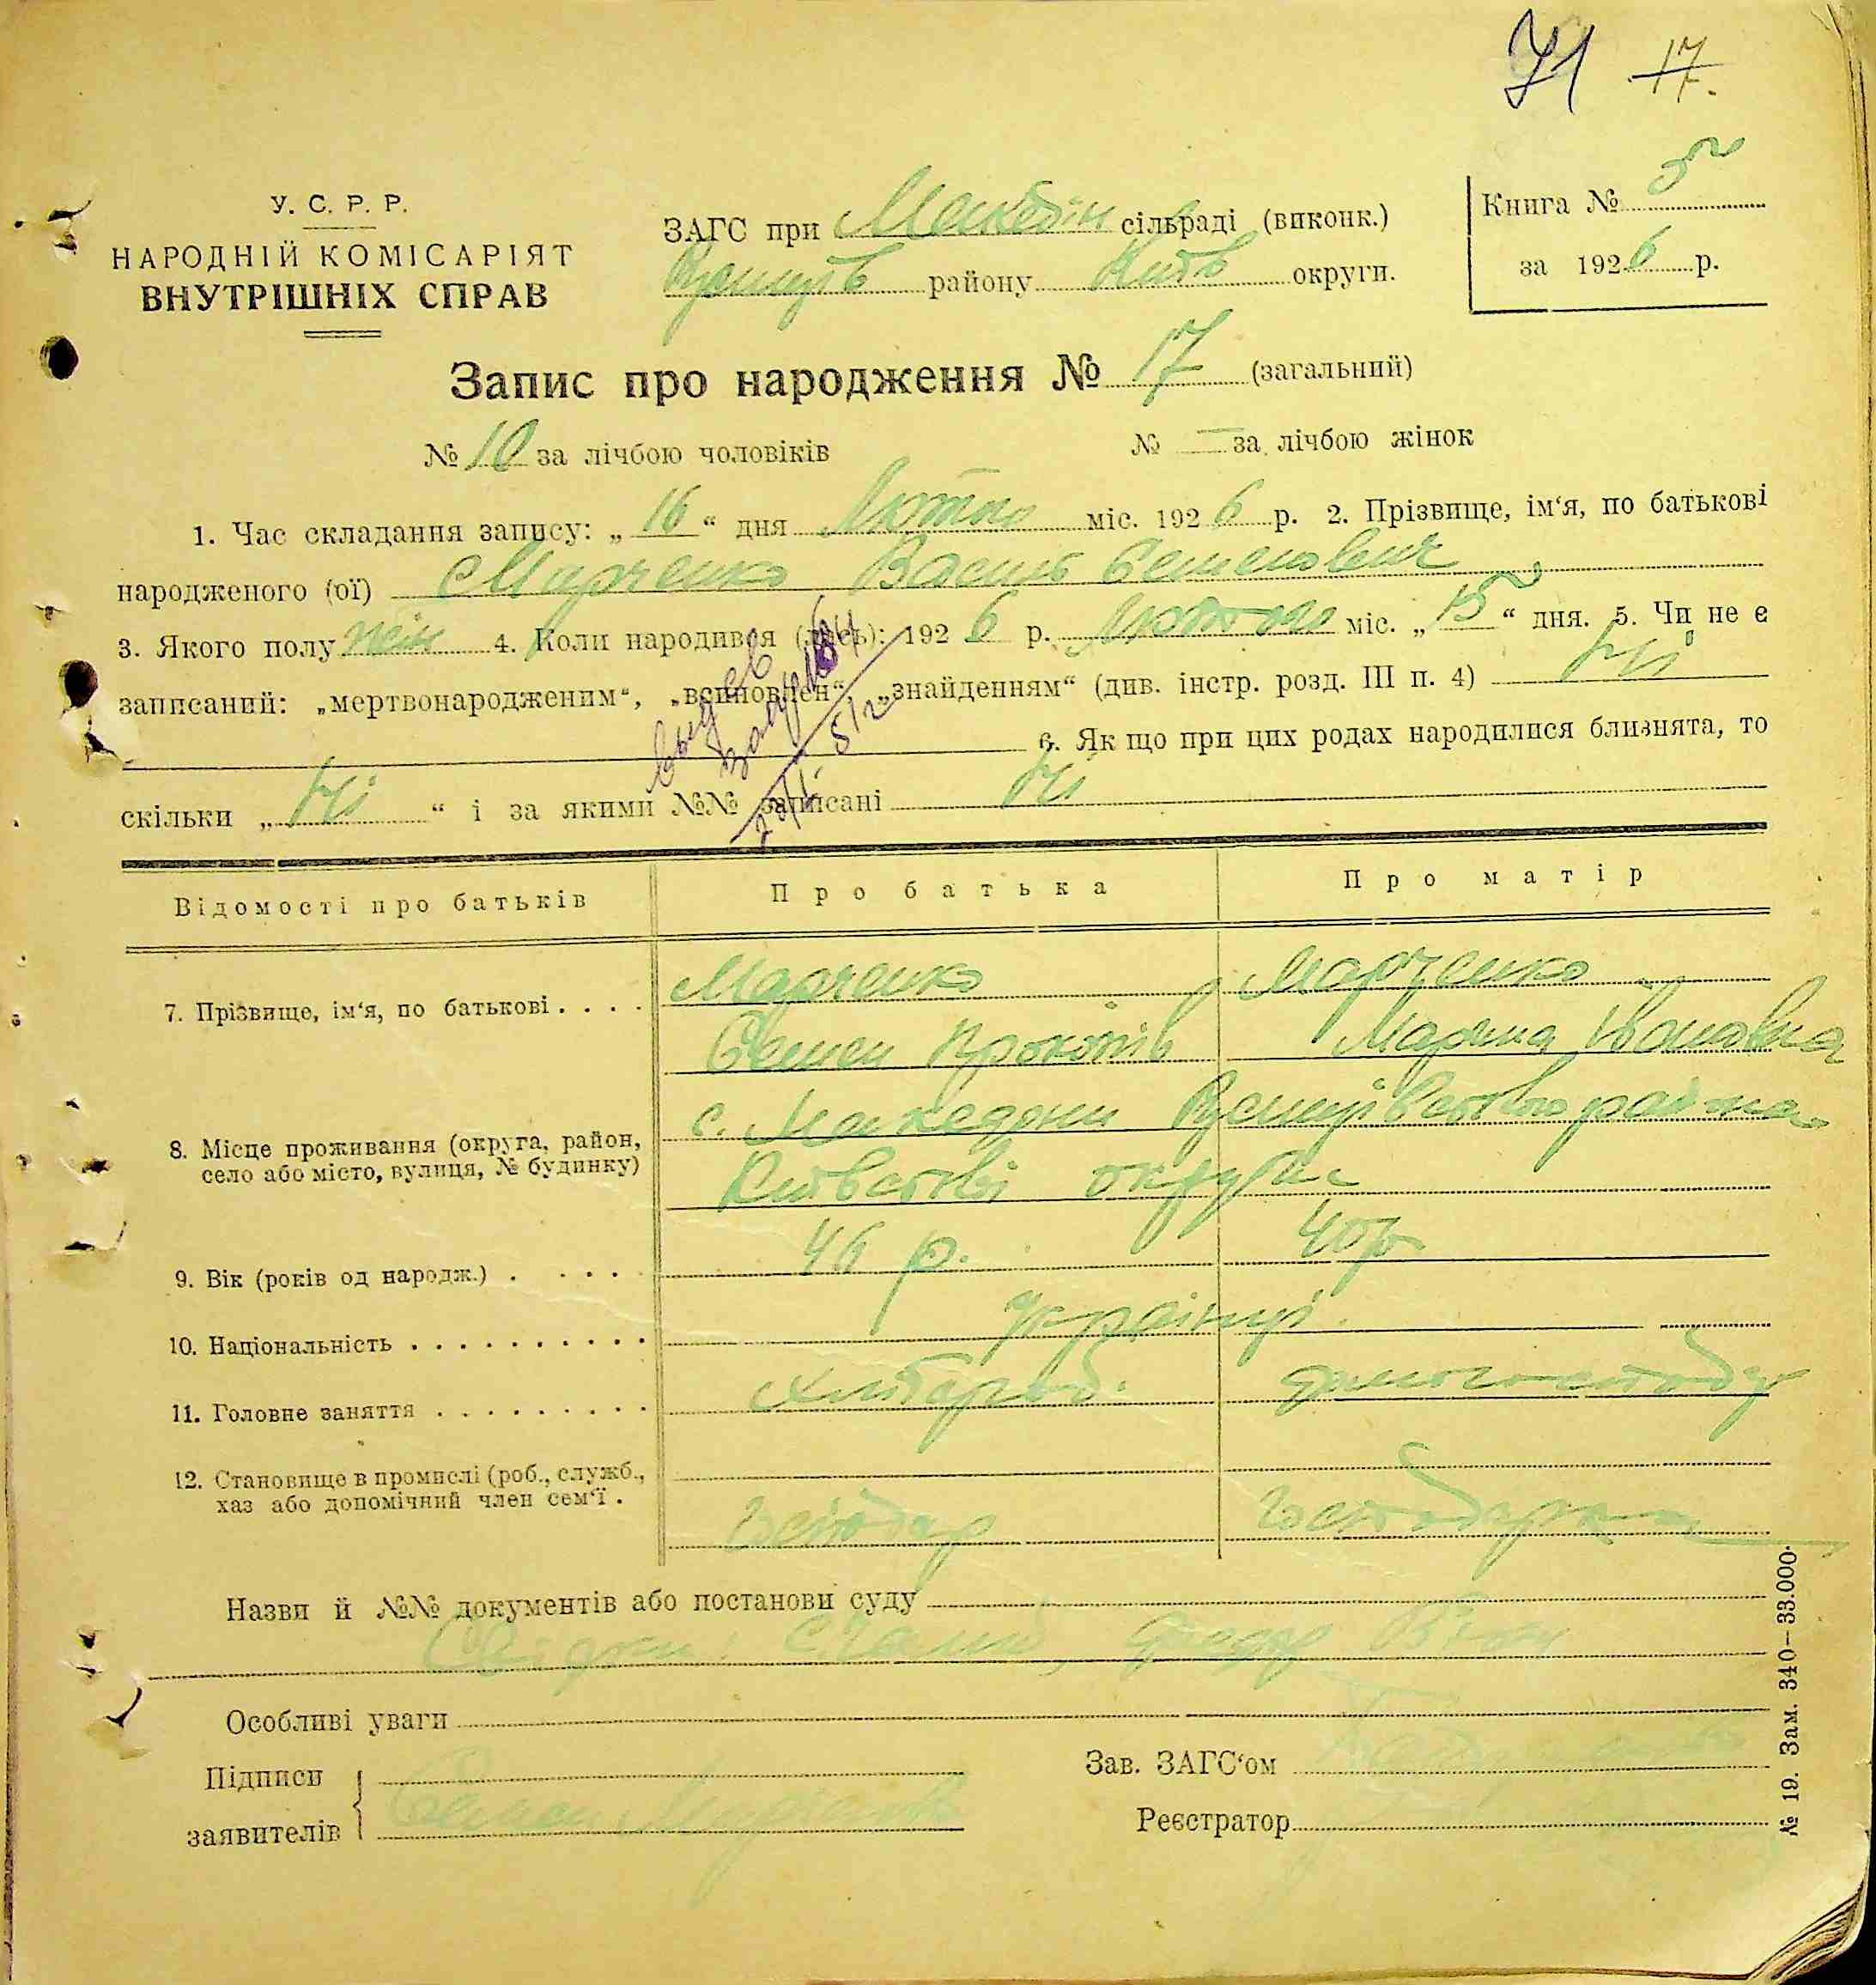 71 17.
У. С. Р. Р.
НАРОДНІЙ КОМІСАРІЯТ
ВНУТРІШНІХ СПРАВ
ЗАГС при Македон сільраді (виконк.)
району Київ округи.
Книга № 5
за 1926 р.
Запис про народження № 17 (загальний)
№ 10 за лічбою чоловіків № — за лічбою жінок
1. Час складання запису: „16“ дня Лютого міс. 1926 р. 2. Прізвище, ім‘я, по батькові
народженого (ої) Марченко Василь Семенович
3. Якого полу 4. Коли народився (лась): 1926 р. Лютого міс. „15“ дня. 5. Чи не є
записаний: „мертвонародженим“, „всиновлен“, „знайденням“ (див. інстр. розд. III п. 4) Ні
6. Як що при цих родах народилися близнята, то
скільки „Ні“ і за якими №№ записані Ні
Відомості про батьків Про батька Про матір
7. Прізвище, ім‘я, по батькові . . . . Марченко Марченко
Семен Прокопів Марина Івановна
8. Місце проживання (округа, район, с. Македони района
село або місто, вулиця, № будинку) Київської округи
9. Вік (років од народж.) . . . . . 46 р. 40 р
10. Національність . . . . . . . . . . Українці
11. Головне заняття . . . . . . . . . Хлібороб. домогосподар
12. Становище в промислі (роб., служб.,
хаз або допомічний член сем‘ї . Господар Господарка
Назви й №№ документів або постанови суду
Свідки:
Особливі уваги
Підписи
заявителів Семен Марченко
Зав. ЗАГС‘ом
Реєстратор
№ 19. Зам. 340—33.000.